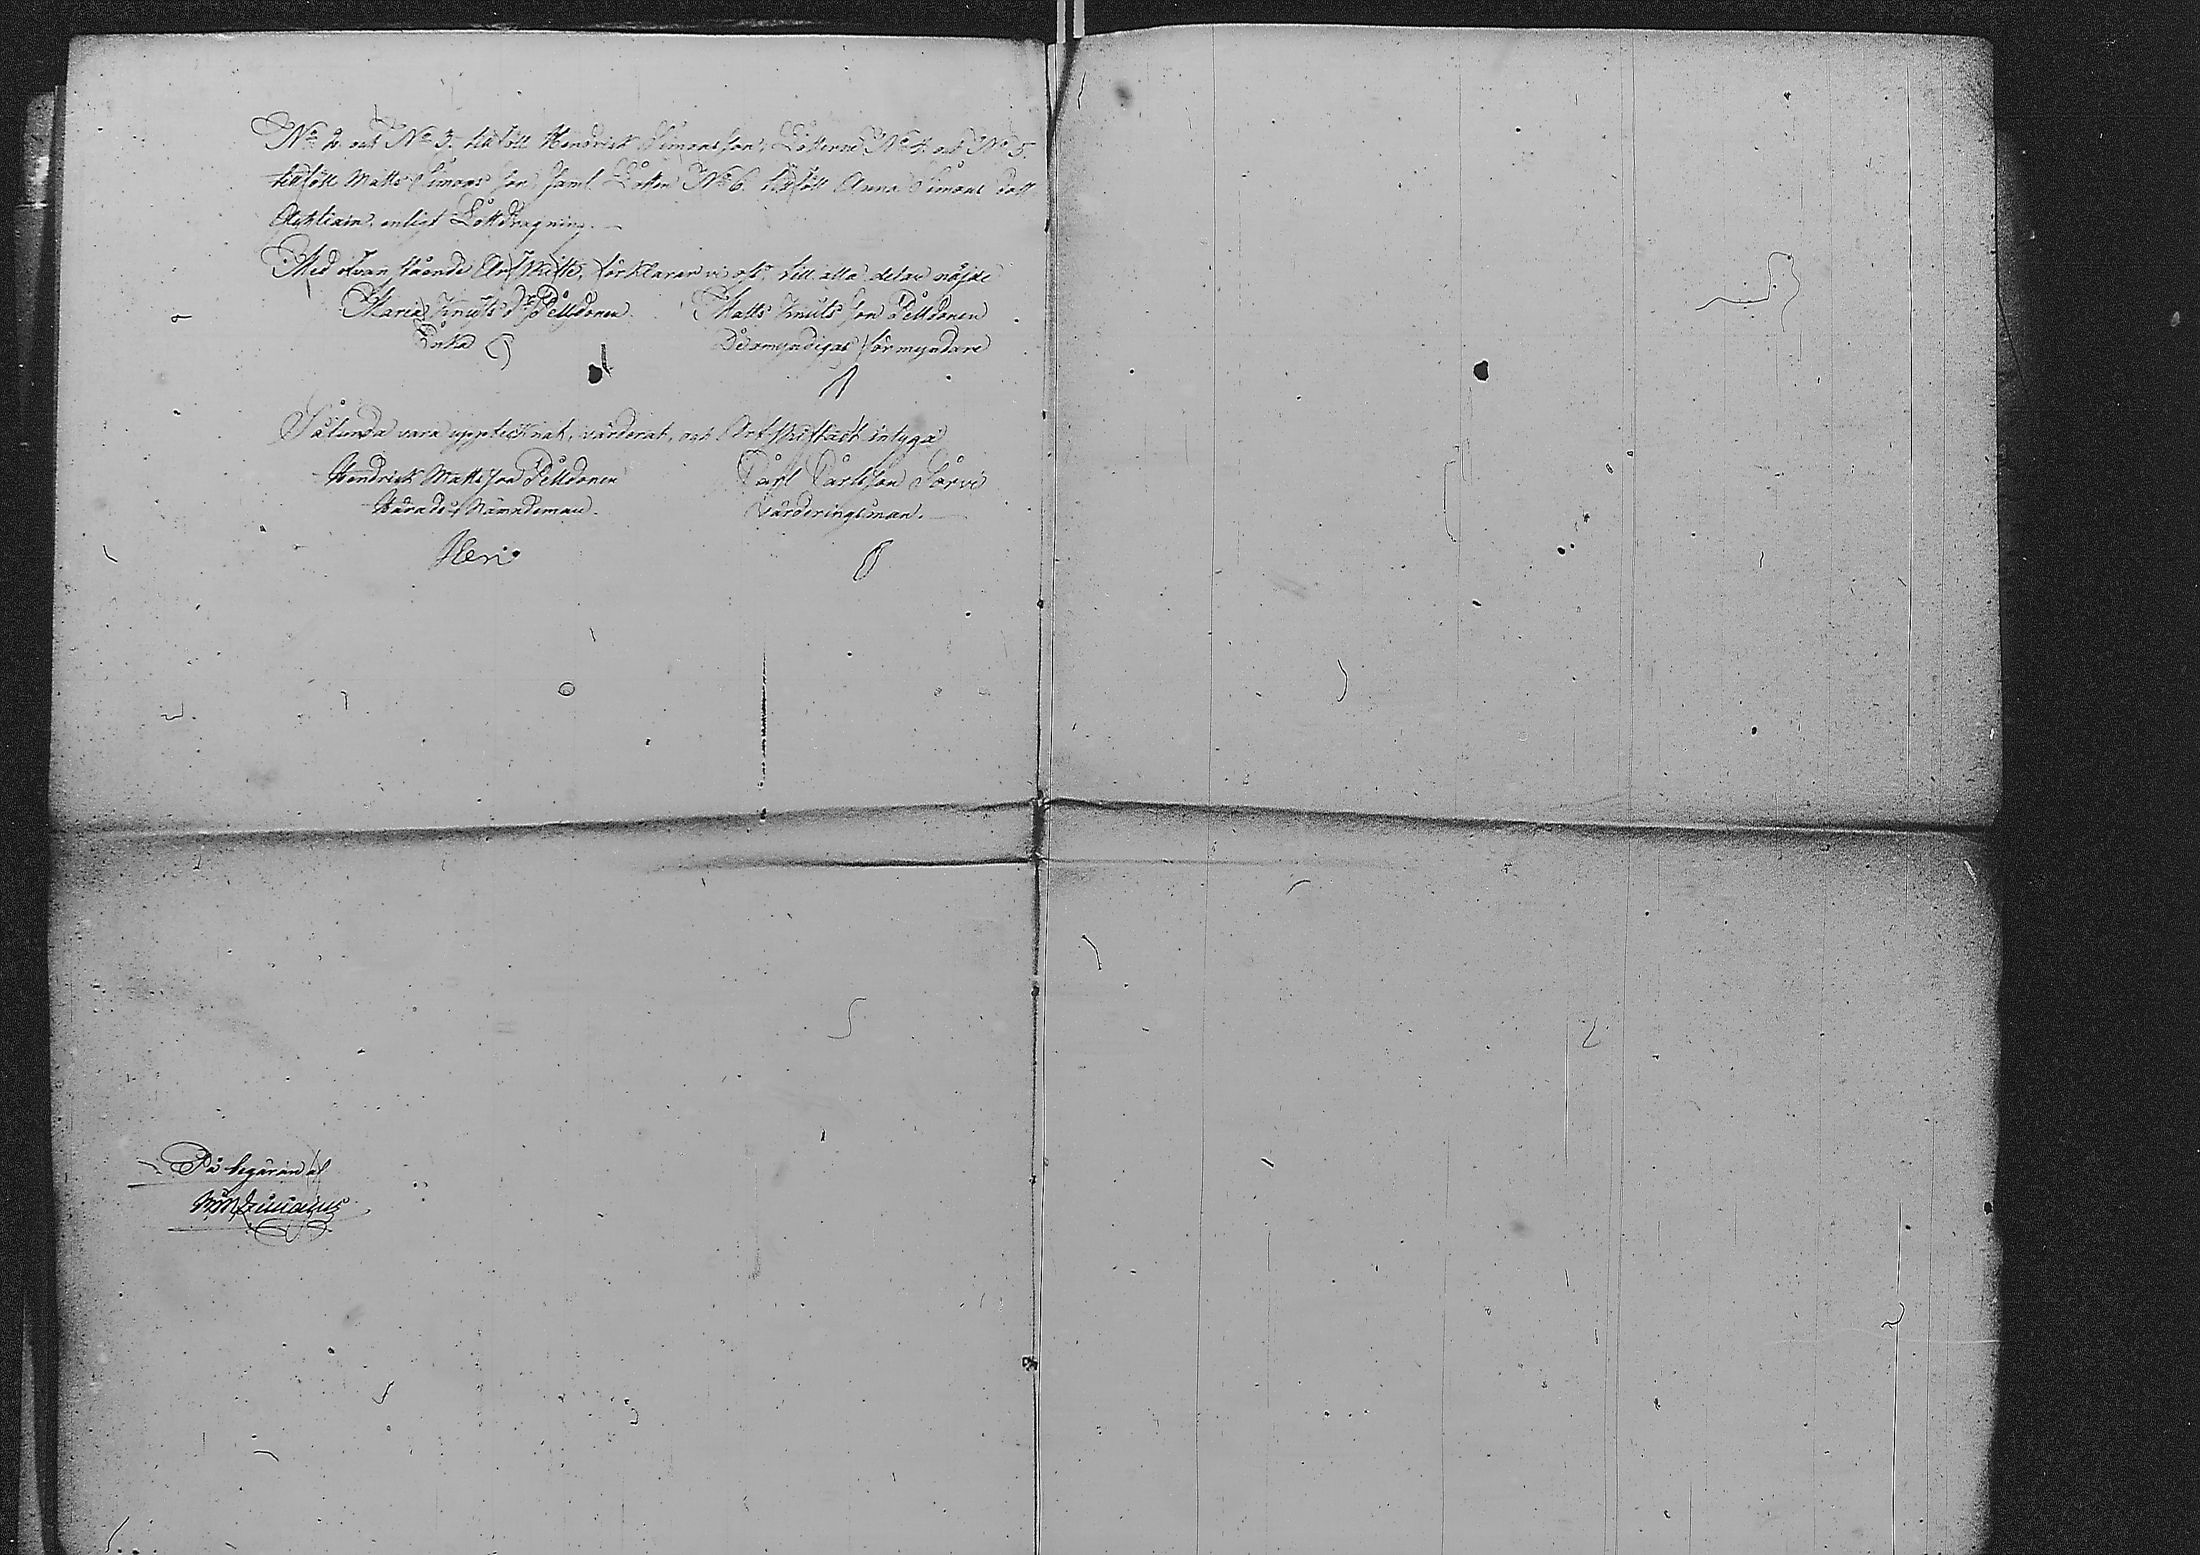 No 2. och No 3. tillföll Hendrick Simonsson, Lotterne No 4. och No 5.
tillföll Matts Simons son samt Lotten No 6. tillföll Anna Simons dott
enligt Lottdragning. —
Med ofvan stående Arfskifte, förklarar vi oss till alla delar nöjde
Maria Knuts Dr Pelldonen Matts Knuts son Pelldonen
Enka Deromyndigas förmyndare
Sålunda vara upptecknat, värderat, och Arfskiftadt intyga
Hendrick Mattsson Pelldonen Carl Carlsson Sarvi
Härads Nämndeman. Värderingsman. —
På begäran af